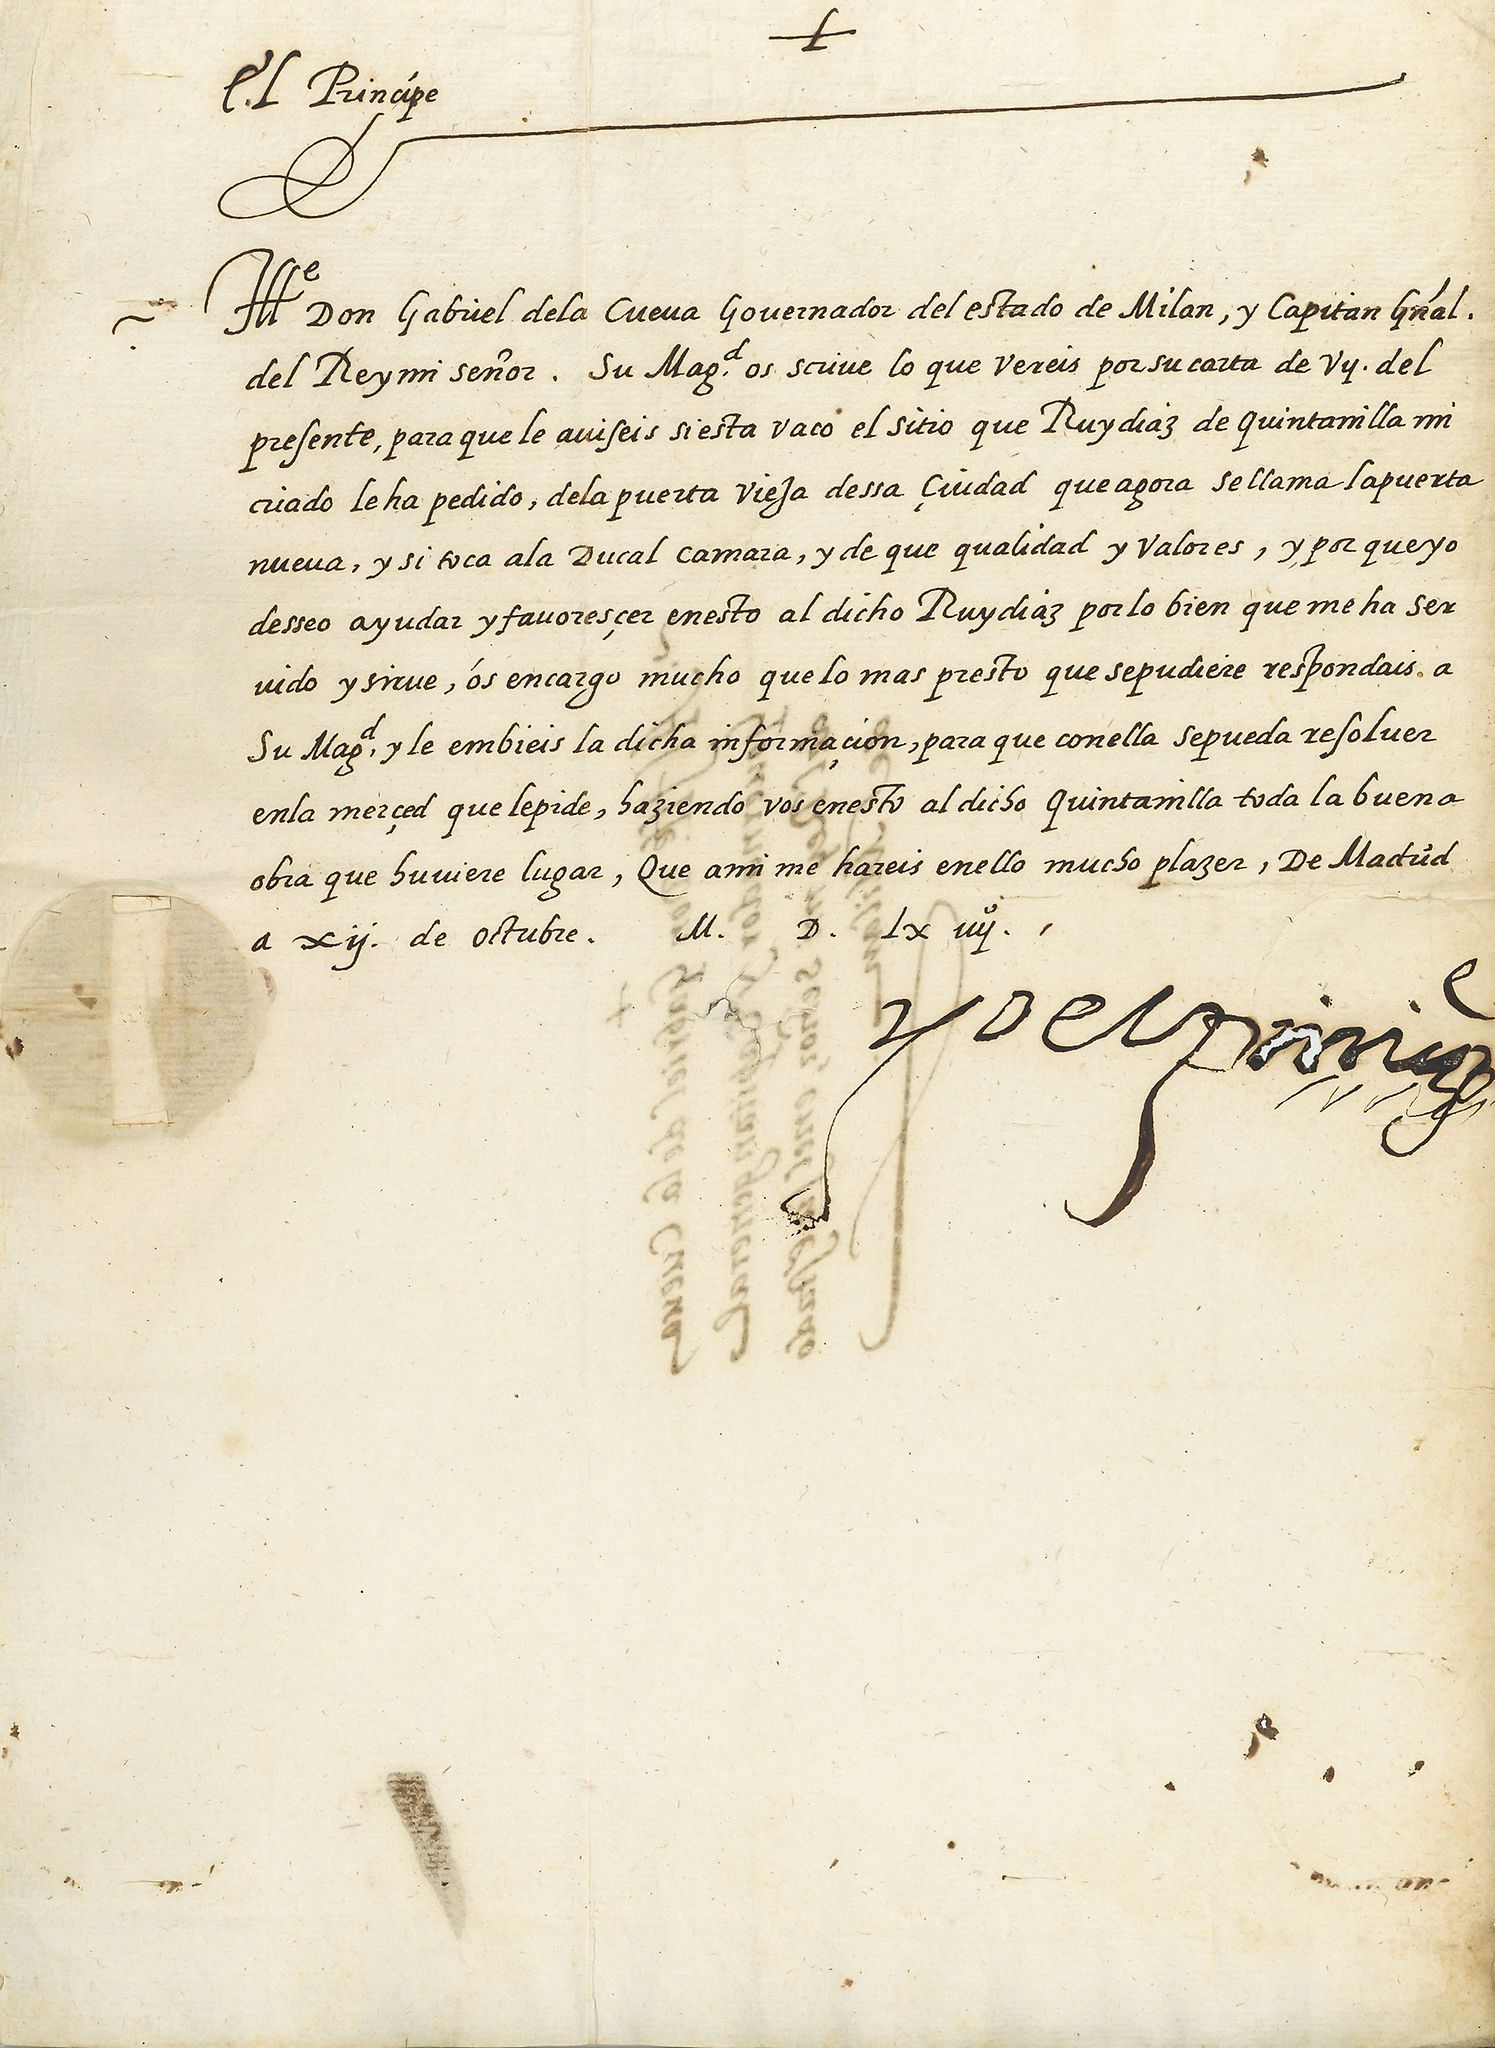 +
El Principe
Ille Don Gabriel dela Cueua Gouernador del estado de Milan, y Capitan Gñal.
del Rey mi señor. Su Magd. os scriue lo que vereis por su carta de vij. del
presente, para que le auiseis si esta vaco el sitio que Ruydiaz de Quintanilla mi
criado le ha pedido, dela puerta vieja dessa Çiudad que agora se llama la puerta
nueua, y si toca ala Ducal camara, y de que qualidad y valores, y por que yo
desseo ayudar y fauoresçer enesto al dicho Ruydiaz por lo bien que me ha ser
uido y sirue, os encargo mucho que lo mas presto que se pudiere respondais a
Su Magd. y le embieis la dicha informaçion, para que conella se pueda resoluer
enla merçed que le pide, haziendo vos enesto al dicho Quintanilla toda la buena
obra que huuiere lugar, Que ami me hareis enello mucho plazer, De Madrid
a xij. de octubre. M. D. lx iiijº.
yo el principe